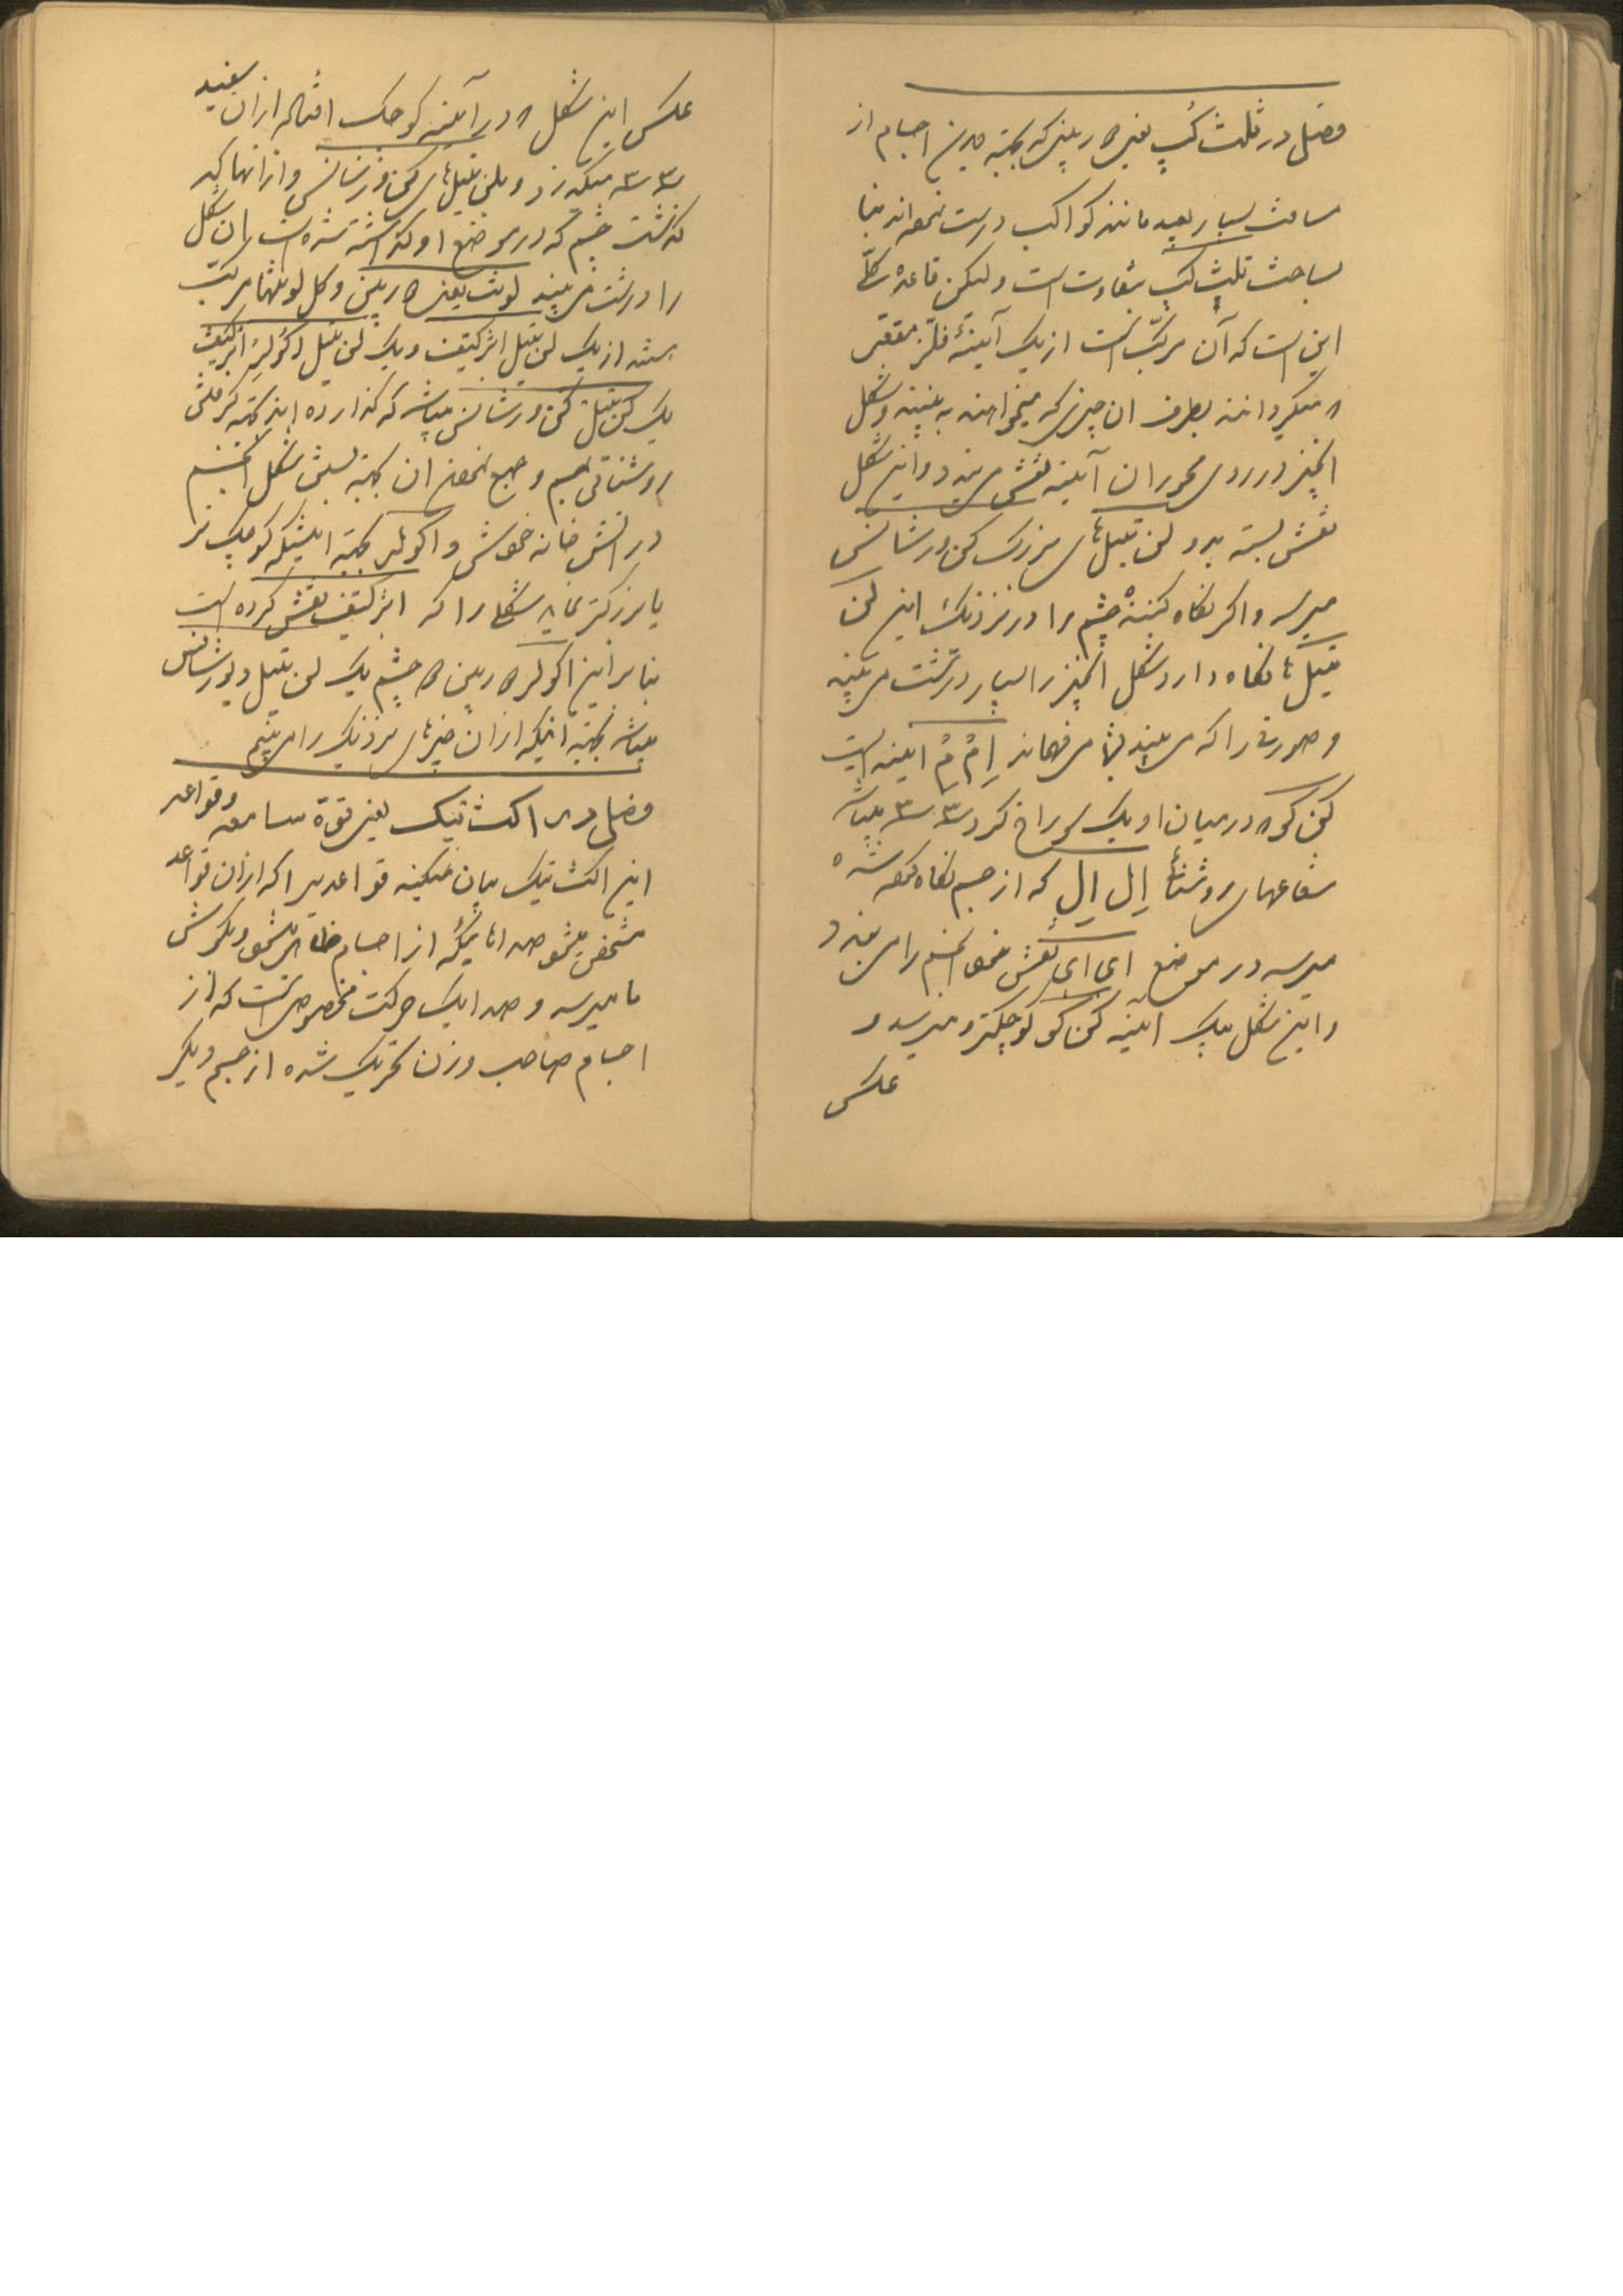 فصل در تلث کپ یعنی دوربینی که بجهته دیدن اجسام از
مسافت بسیار بعید مانند کواکب درست نموده‌اند بنا
ساخت تلث کپ بتفاوت است ولیکن قاعدهٔ کلّی
این است که آن مرکّب است از یک آیینهٔ فلزّ مقعّر
که میگردانند بطرف ان چیزی که میخواهند به بینند و شکل
انچیز در روی محور ان آیینه نقش می بندد و این شکل
نقش بسته بدو لن تیل‌های بزرگ کن ورشانس
میرسد و اگر نگاه کنندهٔ چشم را در نزدیک این لن
تیل‌ها نگاه دارد شکل انچیز را بسیار درشت می بیند
و صورتی را که می بیند بما می فهماند اِمْ مْ آیینه ایست
کن کو که در میان او یک سوراخ کرد س س میباشد
شعاعهای روشنائی اِل اِل که از جسم نگاه کرده شده
میرسد در موضع ای ای نقش خود انجسم را می بندد
و این شکل بیک آیینه کن کو کوچکتر و میرسد و
عکس
عکس این شکل که در آیینه کوچک افتاده از ان سفید
س س میگذرد و بلن تیل‌های کن ورشانس و از انها که
گذشت چشم که در موضع او گذاشته شده است ان شکل
را درشت می بیند لونت یعنی دوربین و کل لونتها مرکّب
هستند از یک لن تیل ابژکتیف و یک لن تیل اکولر ابژکتیف
یک لن تیل کن ورشانس میباشد که گذارده اند بجهته
روشنائی جسم و جمع نمودن ان بجهته بستن شکل انجسم
در آتش خانه خودش و اکولر بجهته اینست که کوچک تر
یا بزرگتر نماید شکلی را که ابژکتیف نقش کرده است
بنابراین اکولر دوربین دو چشم یک لن تیل دیورشانس
میباشد بجهته اینکه از ان چیزهای نزدیک را می بینیم
فصل در اکث تیک یعنی قوّه سامعه و قواعد
این اکث تیک بیان میکند قواعدی را که از ان قواعد
مشخص میشود صداهائیکه از اجسام ظاهر میشود و بگوش
ما میرسد و صدا یک حرکت مخصوصی است که از
اجسام صاحب وزن تحریک شده از جسم دیگر